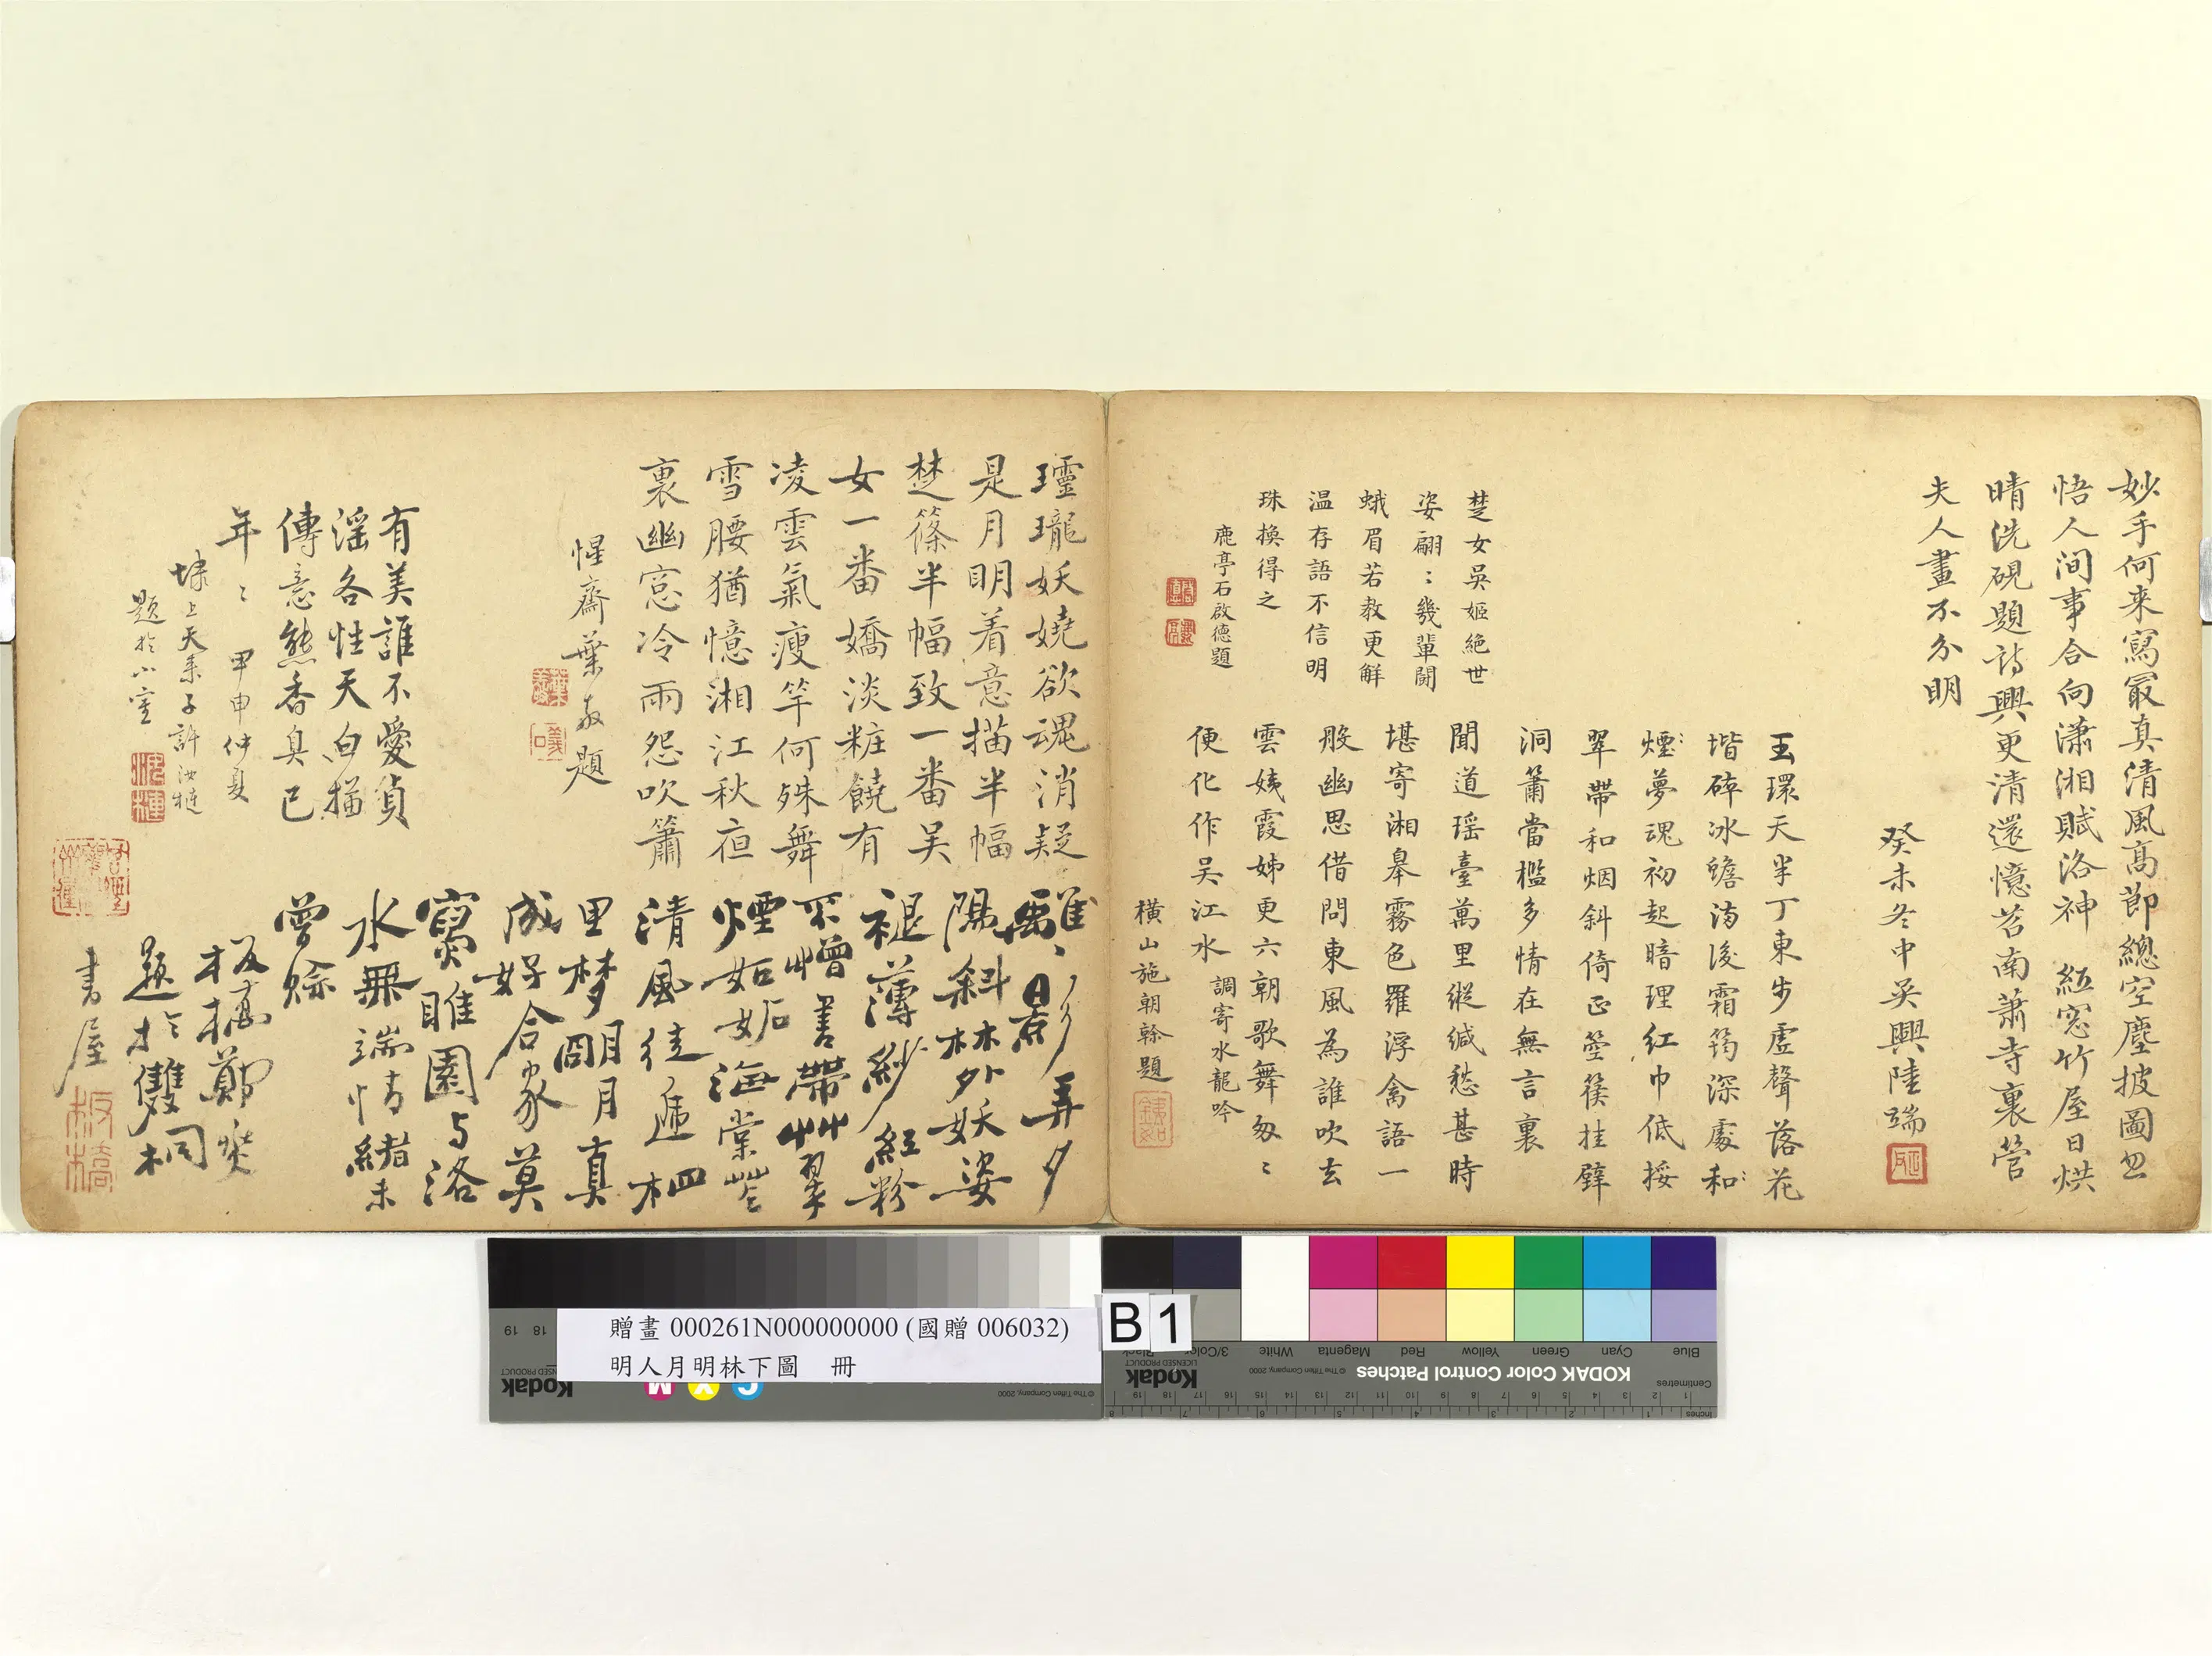 妙手何来寫冣真清風高節總空塵披圖忽
悟人间事合向潇湘賦洛神 紅窓竹屋日烘
晴洗硯題詩興更清還憶苕南蕭寺裏管
夫人畫不分明
癸未冬中吳興陸端
玉環天半丁東步虛聲落花
堦碎冰蟾満後霜筠深處和
煙夢魂初起暗理紅巾低挼
翠帶和烟斜倚正箜篌挂壁
洞簫當檻多情在無言裏
聞道瑶臺萬里縱缄愁甚時
堪寄湘皋霧色羅浮禽語一
般幽思借問東風為誰吹去
雲姨霞姊更六朝歌舞匆〻
便化作吴江水 調寄水龍吟
橫山施朝榦題
楚女吳姬絶世
姿翩〻幾輩鬭
蛾眉若教更觧
温存語不信明
珠換得之
鹿亭石啟德題
瓏妖嬈欲魂消疑
是月明着意描半幅
楚篠半幅致一番吴
女一番嬌淡粧饒有
凌雲氣瘦竿何殊舞
雪腰猶憶湘江秋夜
裏幽窓冷雨怨吹簫
惺齋葉 題
弄夕
陽斜林外妖姿
褪薄紗紅粉
不憎書帶艸翠
煙如妬海棠花
清風徒遞
里梦明月真
成好合家莫
寫睢園与洛
水無端情緒未
曾賒
板橋鄭燮
題於雙桐
書屋
有美誰不愛貞
滛各性天白描
傳意態香臭已
年〻 甲申仲夏
上天 子許
題於小室
板橋
贈畫 000261N000000000 (國贈 006032)
明人月明林下圖 冊
B 1
Blue Cyan Green Yellow Red Magenta White 3/Color Black
KODAK Color Control Patches
© The Tiffen Company, 2000
Kodak
LICENSED PRODUCT
Centimetres
Inches
M Y C
18 19